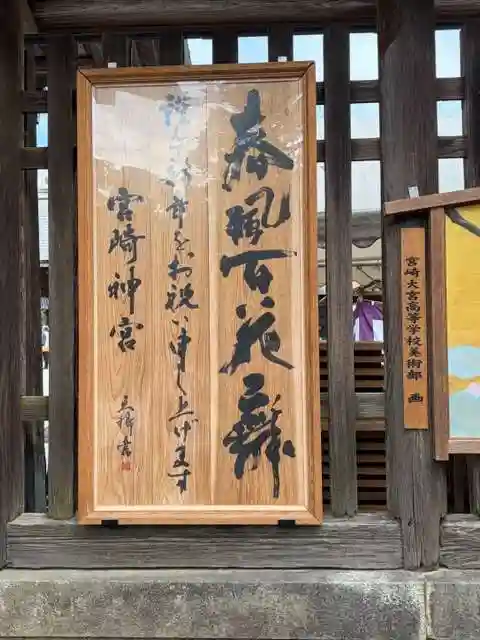 春風百花舞
謹んで新年をお祝い申し上げます
宮崎神宮
宮崎大宮高等学校美術部 画